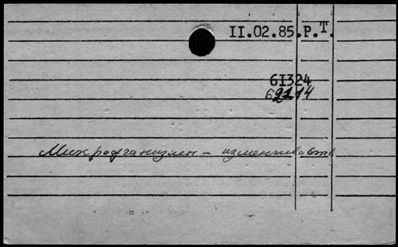 II.02.85.Р.Т.
6I324
62114
Микроорганизмы - изменчивость